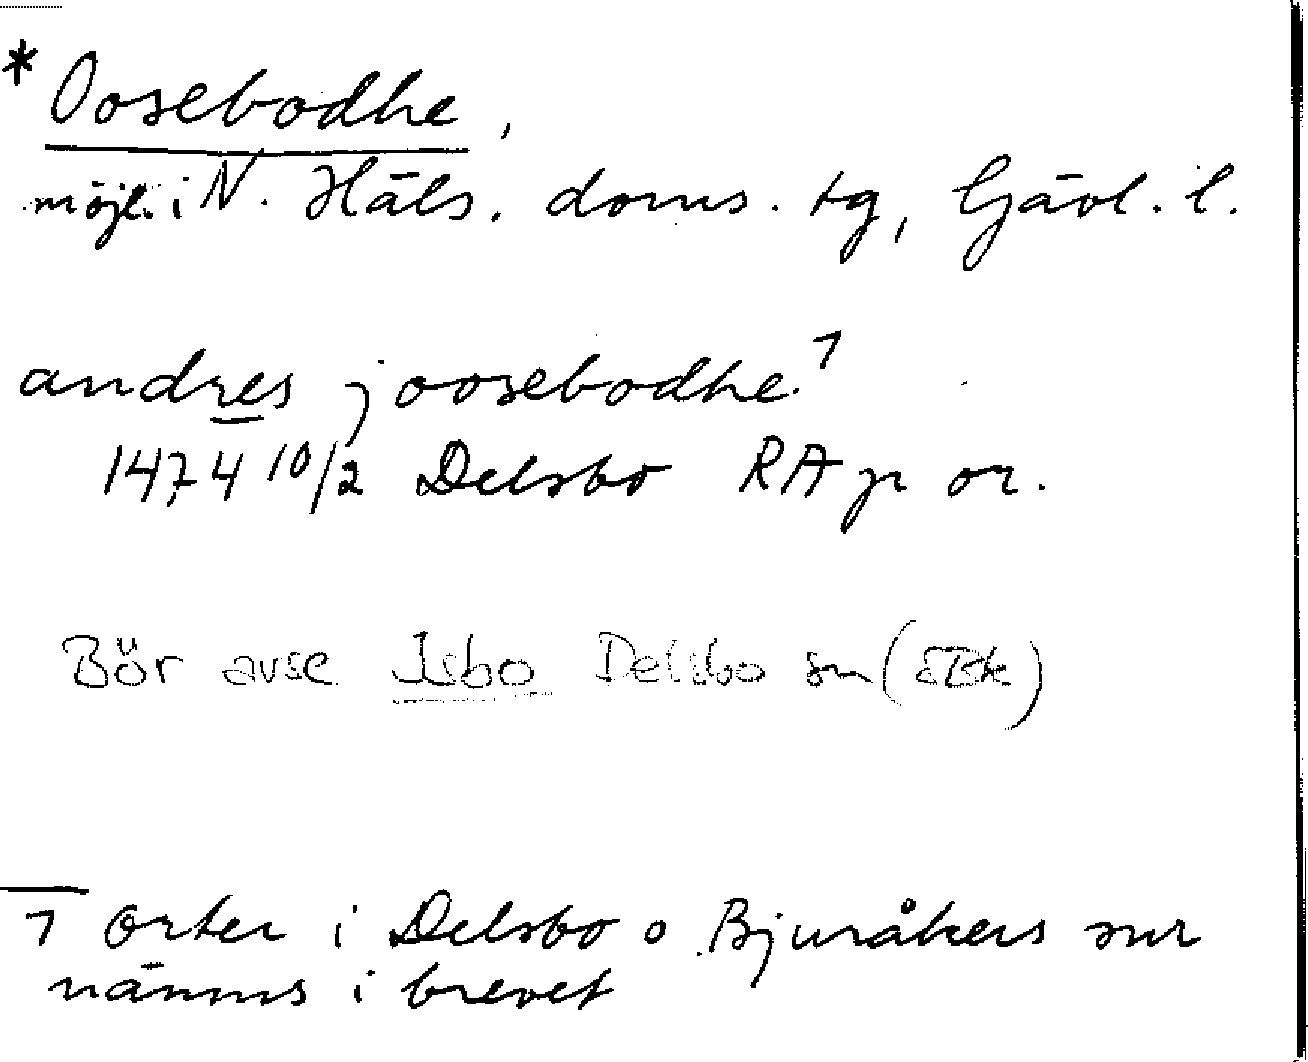 * Oosebodhe,
möjl. i N. Häls. doms. tg, Gävl. l.
andres j oosebodhe. 1
1474 10/2 Delsbo RAp or.
Bör avse Isbo Delsbo sn (
1 Orter i Delsbo o Bjuråkers snr
nämns i brevet